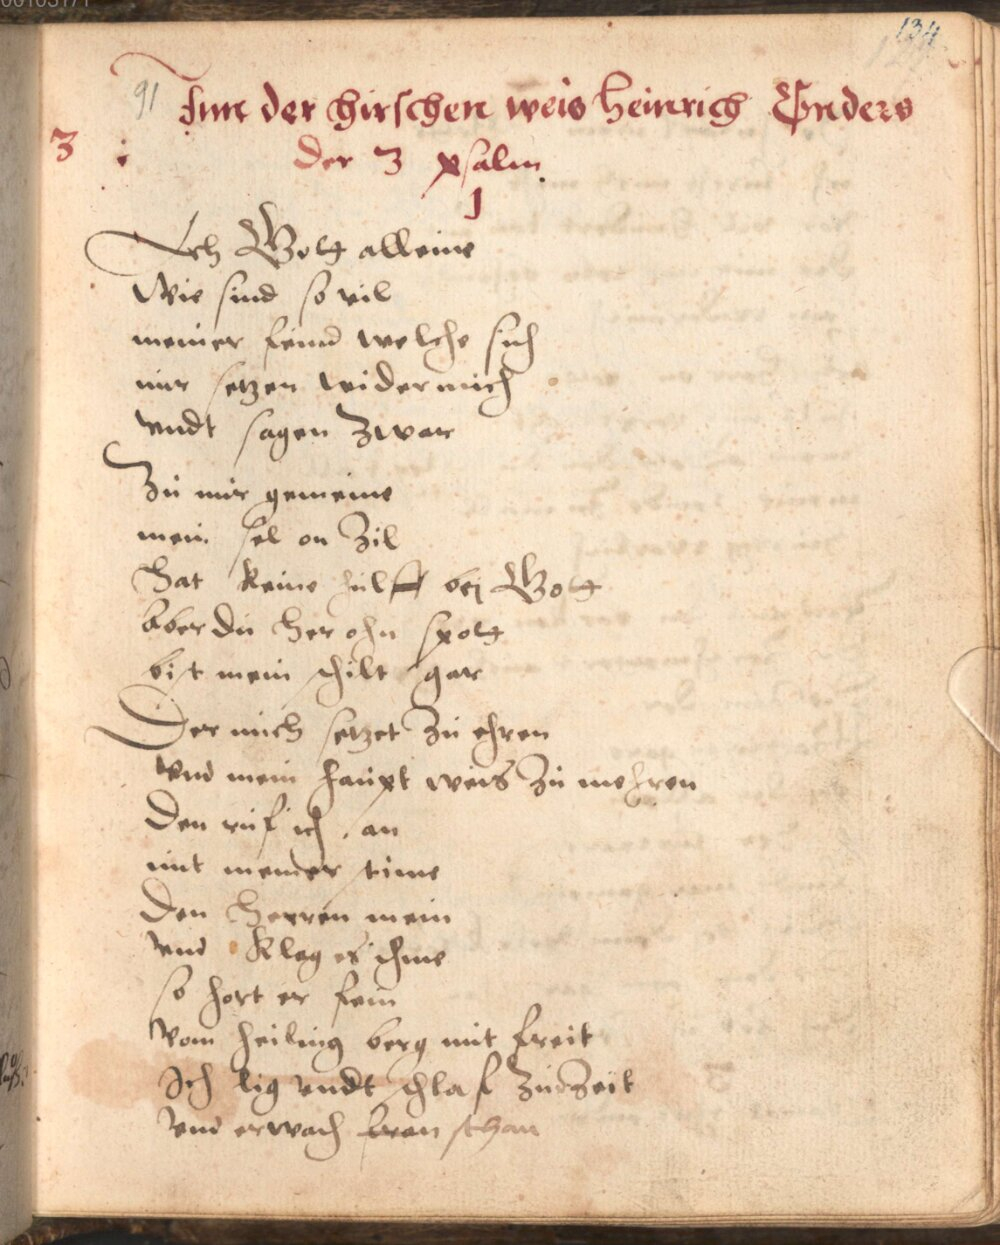 134
91 Jnn der hirschen weis Heinrich Enders
3 Der 3 psalm
1
Ach Gott alleine
Wie sind so vil
meiner feind welche sich
mir setzen wider mich
vndt sagen Zwar
Zu mir gemeine
mein sel on Zil
Hat keine hülff bej Gott
aber du Her ohn spott
bist mein schilt gar
Der mich setzet Zu ehren
vnd mein haupt weis Zu mehren
Den ruf ich an
mit meiner stime
Den Herren mein
vnd klag es ihme
so hort er fein
vom heiling berg mit freit
Ich lig vndt schlaf Zu Zeit
vnd erwach fran schan